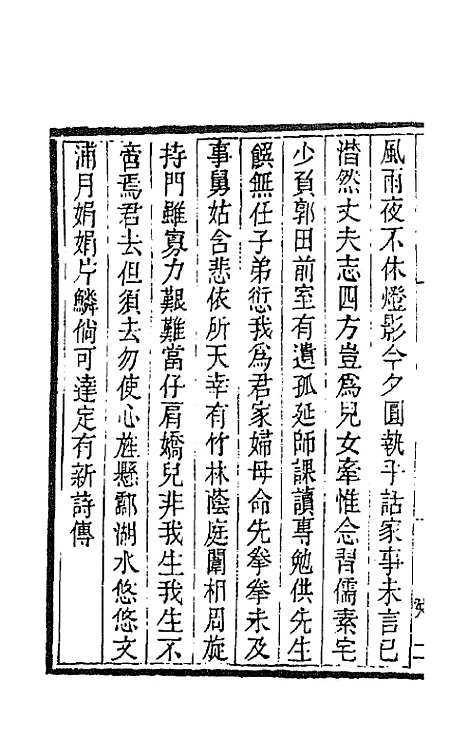 風雨夜不休燈影今夕圓執手話家事未言已
潸然丈夫志四方豈爲兒女牽惟念習儒素宅
少負郭田前室有遺孤延師課讀專勉供先生
饌無任子弟愆我爲君家婦母命先拳拳未及
事舅姑含悲依所天幸有竹林蔭庭闈相周旋
持門雖寡力艱難當仔肩嬌兒非我生我生不
啻焉君去但須去勿使心旌懸鄱湖水悠悠文
浦月娟娟片鱗倘可達定有新詩傳
二